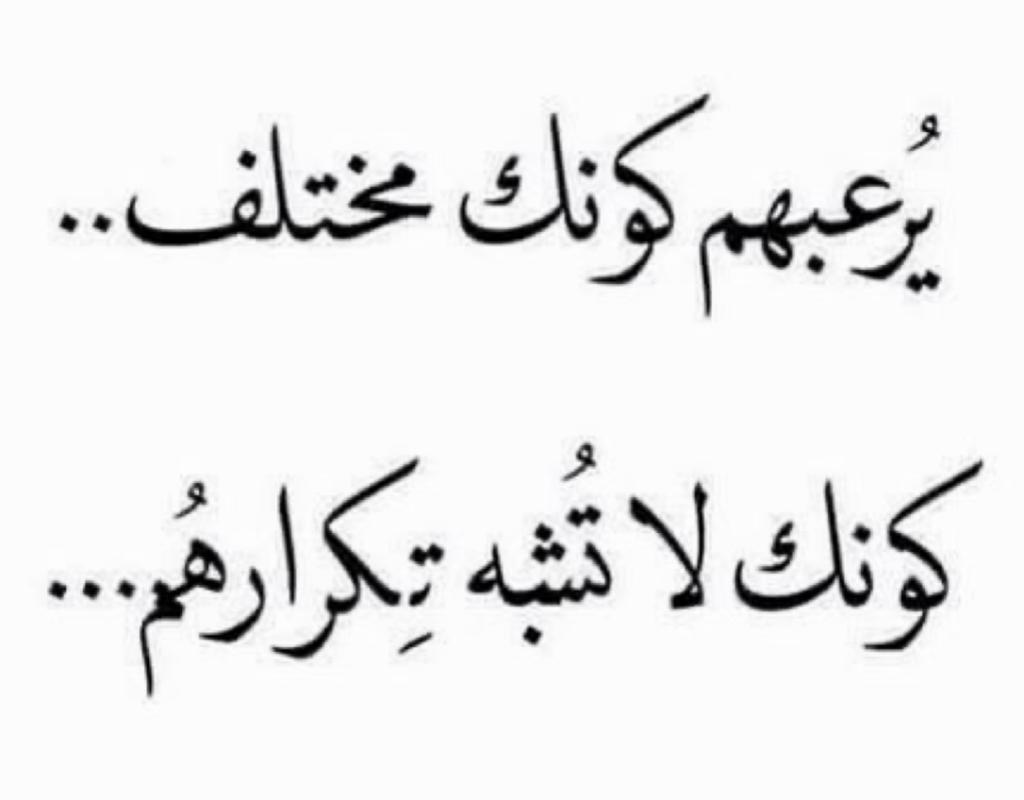 يُرعبهم كونك مختلف..
كونك لا تُشبه تِكرارهُم...